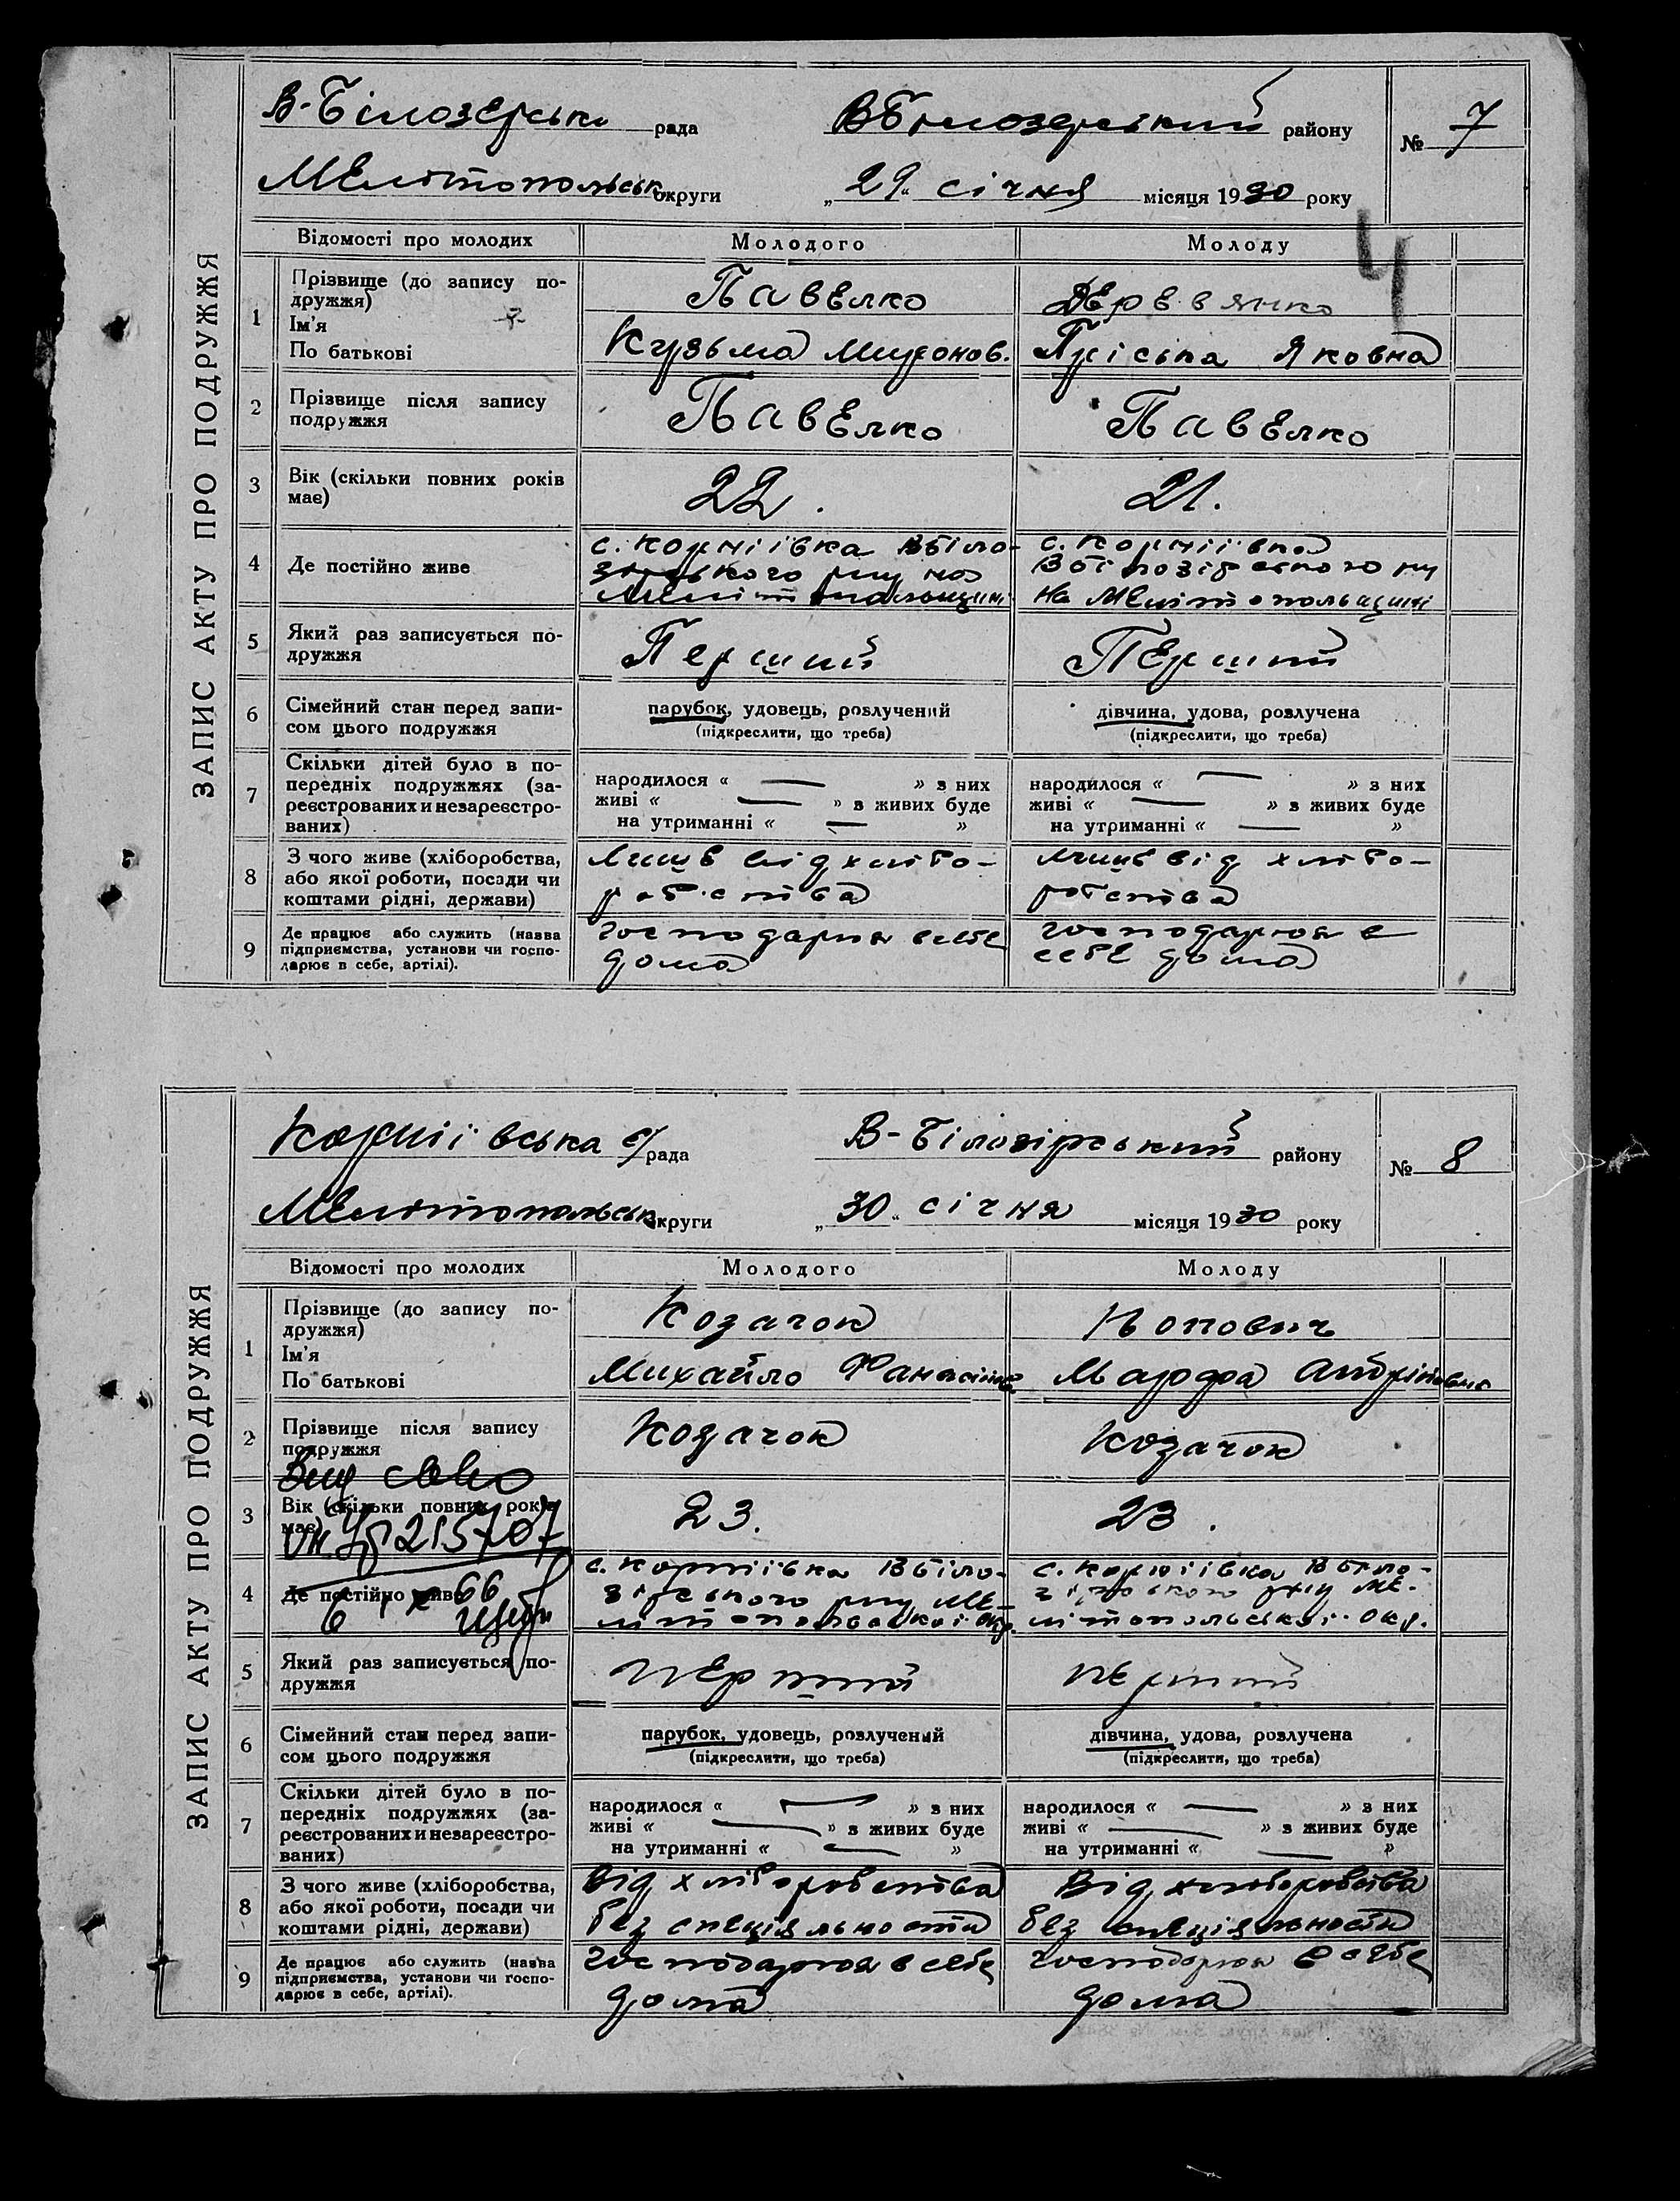 ЗАПИС АКТУ ПРО ПОДРУЖЖЯ
В-Білозерська рада ВБілозерський району № 7
Мелітопольськ округи „29“ січня місяця 1930 року
4
Відомості про молодих Молодого Молоду
1 Прізвище (до запису по-
дружжя)
Ім'я
По батькові
Павелко
Кузьма Миронов.
Деревянко
Пріська Яковна
2 Прізвище після запису
подружжя
Павелко Павелко
3 Вік (скільки повних років
має)
22. 21.
4 Де постійно живе
с. Корніївка ВБіло-
зерського р-ну на
Мелітопольщині
с. Корніївка
ВБілозірського р-ну
на Мелітопольщині
5 Який раз записується по-
дружжя
Перший Перший
6 Сімейний стан перед запи-
сом цього подружжя
парубок, удовець, розлучений
(підкреслити, що треба)
дівчина, удова, розлучена
(підкреслити, що треба)
7 Скільки дітей було в по-
передніх подружжях (за-
реєстрованих и незареєстро-
ваних)
народилося « — » з них
живі « — » з живих буде
на утриманні « — »
народилося « — » з них
живі « — » з живих буде
на утриманні « — »
8 З чого живе (хліборобства,
або якої роботи, посади чи
коштами рідні, держави)
лише від хлібо-
робства
лише від хлібо-
робства
9 Де працює або служить (назва
підприємства, установи чи госпо-
дарює в себе, артілі).
господарює в себе
дома
господарює в
себе дома
ЗАПИС АКТУ ПРО ПОДРУЖЖЯ
Корніївська с/рада В-Білозірський району № 8
Мелітопольськ округи „30“ січня місяця 1930 року
Відомості про молодих Молодого Молоду
1 Прізвище (до запису по-
дружжя)
Ім'я
По батькові
Козачок
Михайло
Попович
Марфа
2 Прізвище після запису
подружжя
Козачок Козачок
3 Вік (скільки повних років
має)
215707
23. 23.
4 Де постійно живе
66
с. Корніївка ВБіло-
зірського р-ну Ме-
літопольської окр.
с. Корніївка ВБіло-
зірського р-ну Ме-
літопольської окр.
5 Який раз записується по-
дружжя
перший перший
6 Сімейний стан перед запи-
сом цього подружжя
парубок, удовець, розлучений
(підкреслити, що треба)
дівчина, удова, розлучена
(підкреслити, що треба)
7 Скільки дітей було в по-
передніх подружжях (за-
реєстрованих и незареєстро-
ваних)
народилося « — » з них
живі « — » з живих буде
на утриманні « — »
народилося « — » з них
живі « — » з живих буде
на утриманні « — »
8 З чого живе (хліборобства,
або якої роботи, посади чи
коштами рідні, держави)
Від хліборобства
без спеціяльности
Від хліборобства
без спеціяльности
9 Де працює або служить (назва
підприємства, установи чи госпо-
дарює в себе, артілі).
господарює в себе
дома
господарює в себе
дома